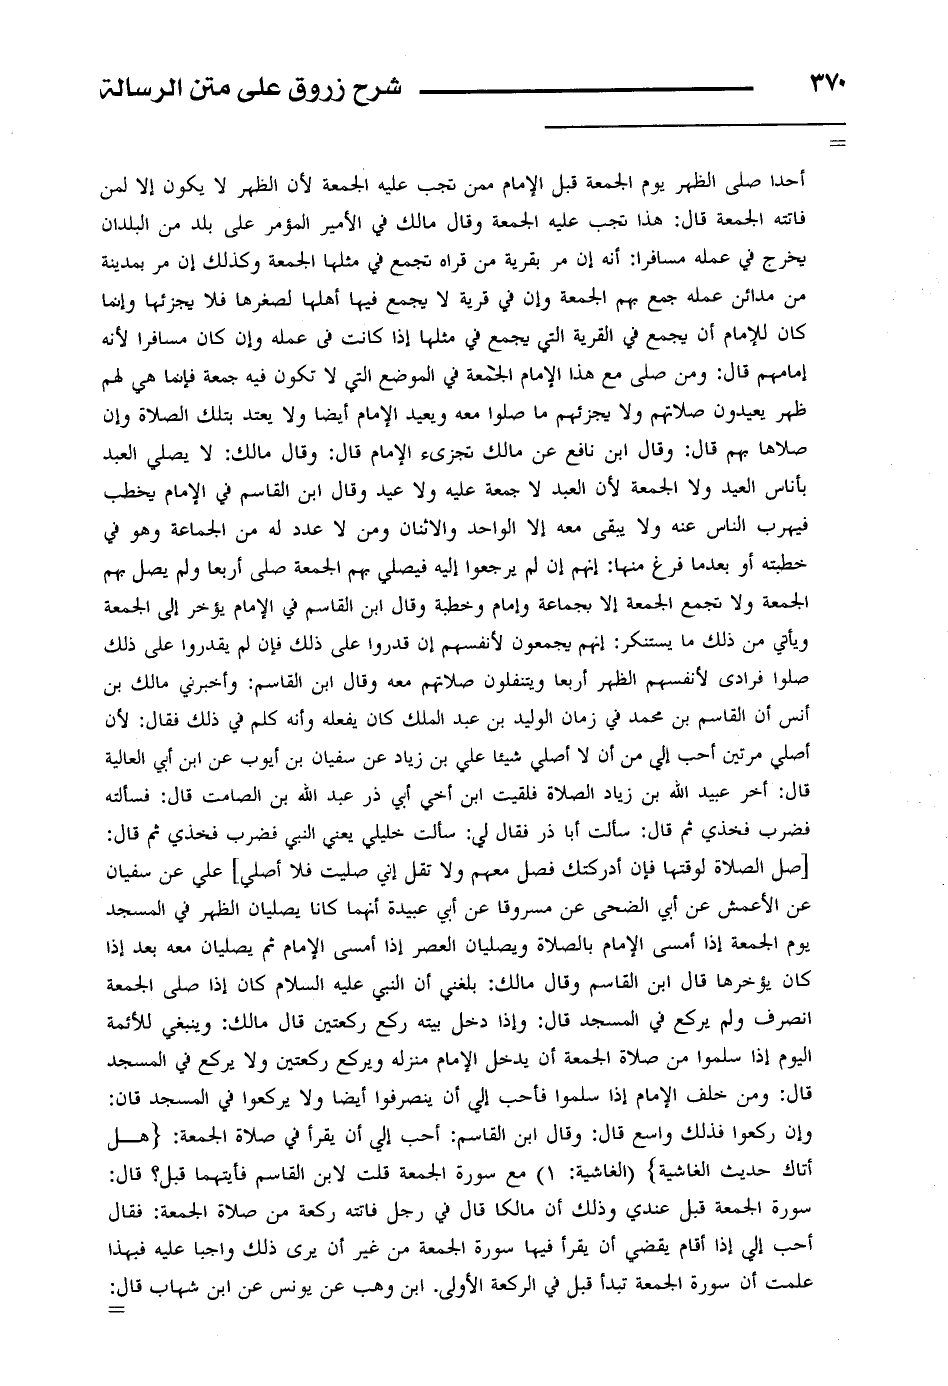 ٣٧٠ شرح زروق على متن الرسالة
=
أحدا صلى الظهر يوم الجمعة قبل الإمام ممن تجب عليه الجمعة لأن الظهر لا يكون إلا لمن
فاتته الجمعة قال: هذا تجب عليه الجمعة وقال مالك في الأمير المؤمر على بلد من البلدان
يخرج في عمله مسافرا: أنه إن مر بقرية من قراه تجمع في مثلها الجمعة وكذلك إن مر بمدينة
من مدائن عمله جمع بهم الجمعة وإن في قرية لا يجمع فيها أهلها لصغرها فلا يجزئها وإنما
كان للإمام أن يجمع في القرية التي يجمع في مثلها إذا كانت فى عمله وإن كان مسافرا لأنه
إمامهم قال: ومن صلى مع هذا الإمام الجمعة في الموضع التي لا تكون فيه جمعة فإنما هي لهم
ظهر يعيدون صلاتهم ولا يجزئهم ما صلوا معه ويعيد الإمام أيضا ولا يعتد بتلك الصلاة وإن
صلاها بهم قال: وقال ابن نافع عن مالك تجزىء الإمام قال: وقال مالك: لا يصلي العبد
بأناس العيد ولا الجمعة لأن العبد لا جمعة عليه ولا عيد وقال ابن القاسم في الإمام يخطب
فيهرب الناس عنه ولا يبقى معه إلا الواحد والاثنان ومن لا عدد له من الجماعة وهو في
خطبته أو بعدما فرغ منها: إنهم إن لم يرجعوا إليه فيصلي بهم الجمعة صلى أربعا ولم يصل بهم
الجمعة ولا تجمع الجمعة إلا بجماعة وإمام وخطبة وقال ابن القاسم في الإمام يؤخر إلى الجمعة
ويأتي من ذلك ما يستنكر: إنهم يجمعون لأنفسهم إن قدروا على ذلك فإن لم يقدروا على ذلك
صلوا فرادى لأنفسهم الظهر أربعا ويتنفلون صلاتهم معه وقال ابن القاسم: وأخبرني مالك بن
أنس أن القاسم بن محمد في زمان الوليد بن عبد الملك كان يفعله وأنه كلم في ذلك فقال: لأن
أصلي مرتين أحب إلي من أن لا أصلي شيئا علي بن زياد عن سفيان بن أيوب عن ابن أبي العالية
قال: أخر عبيد الله بن زياد الصلاة فلقيت ابن أخي أبي ذر عبد الله بن الصامت قال: فسألته
فضرب فخذي ثم قال: سألت أبا ذر فقال لي: سألت خليلي يعني النبي فضرب فخذي ثم قال:
[صل الصلاة لوقتها فإن أدركتك فصل معهم ولا تقل إني صليت فلا أصلي] علي عن سفيان
عن الأعمش عن أبي الضحى عن مسروقا عن أبي عبيدة أنهما كانا يصليان الظهر في المسجد
يوم الجمعة إذا أمسى الإمام بالصلاة ويصليان العصر إذا أمسى الإمام ثم يصليان معه بعد إذا
كان يؤخرها قال ابن القاسم وقال مالك: بلغني أن النبي عليه السلام كان إذا صلى الجمعة
انصرف ولم يركع في المسجد قال: وإذا دخل بيته ركع ركعتين قال مالك: وينبغي للأئمة
اليوم إذا سلموا من صلاة الجمعة أن يدخل الإمام منزله ويركع ركعتين ولا يركع في المسجد
قال: ومن خلف الإمام إذا سلموا فأحب إلي أن ينصرفوا أيضا ولا يركعوا في المسجد قان:
وإن ركعوا فذلك واسع قال: وقال ابن القاسم: أحب إلي أن يقرأ في صلاة الجمعة: {هـــل
أتاك حديث الغاشية} (الغاشية: ١) مع سورة الجمعة قلت لابن القاسم فأيتهما قبل؟ قال:
سورة الجمعة قبل عندي وذلك أن مالكا قال في رجل فاتته ركعة من صلاة الجمعة: فقال
أحب إلي إذا أقام يقضي أن يقرأ فيها سورة الجمعة من غير أن يرى ذلك واجبا عليه فبهذا
علمت أن سورة الجمعة تبدأ قبل في الركعة الأولى. ابن وهب عن يونس عن ابن شهاب قال:
=